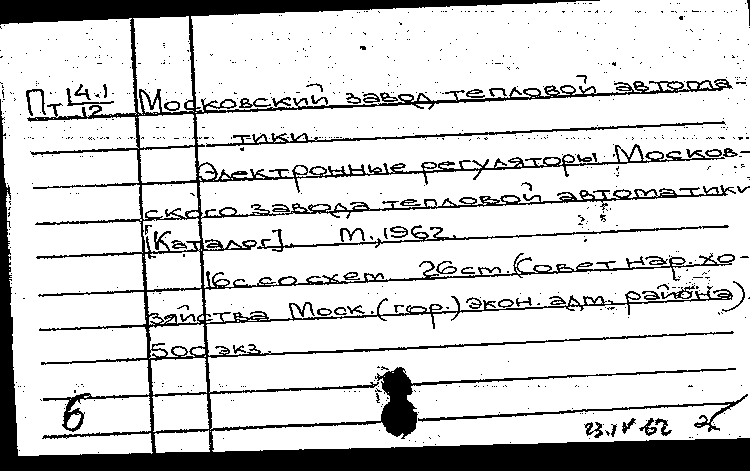 Пт 14.1/12 Московский завод тепловой автома-
тики.
Электронные регуляторы Москов-
ского завода тепловой автоматики
[Каталог]. М., 1962.
16с. со схем. 26см. (Совет нар. хо-
зяйства Моск. (гор.) экон. адм. района)
500 экз.
6
23.IV 62